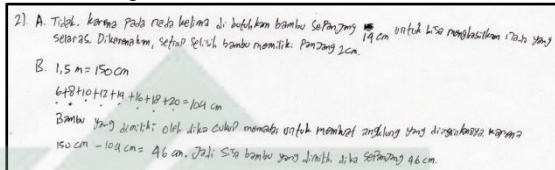 2). A. Tidak. karena Pada nada kelima di butuhkan bambu sepanjang 14 cm untuk bisa menghasilkan nada yang
selaras. Dikarenakan, setiap selisih bambu memiliki panjang 2cm.
B. 1,5 m = 150 cm
6+8+10+12+14+16+18+20 = 104 cm
Bambu yang dimiliki oleh dika cukup memadai untuk membuat angklung yang diinginkannya karena
150 cm - 104 cm = 46 cm. Jadi sisa bambu yang dimiliki dika sepanjang 46 cm.